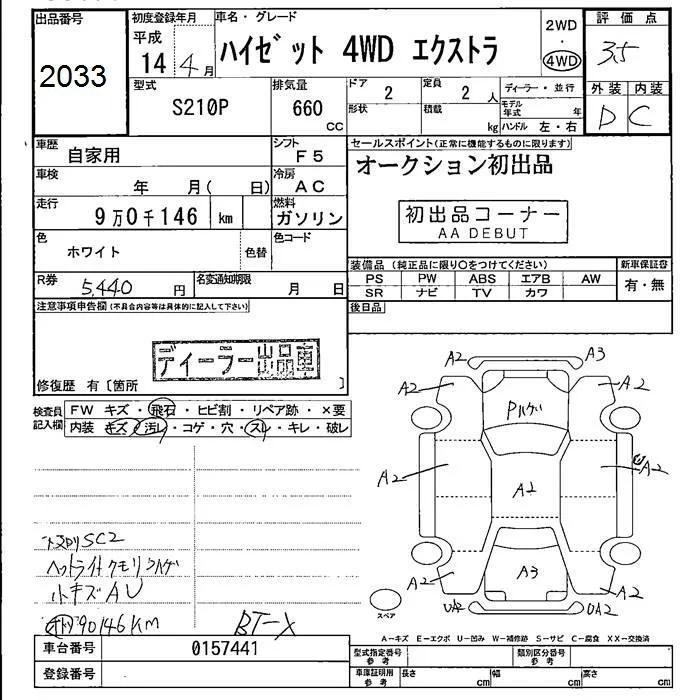 出品番号
2033
初度登録年月
平成
14 4 月
車名・グレード
ハイゼット 4WD エクストラ
2WD
・
4WD
評価点
3.5
外装 内装
D C
型式
S210P
排気量
660
cc
ドア
2
形状
定員
2 人
積載
kg
ディーラー・並行
モデル年式 年
ハンドル 左・右
車歴
自家用
シフト
F5
車検
年 月( 日)
冷房
AC
走行
9万0千146 km
燃料
ガソリン
色
ホワイト
色替
色コード
R券
5,440 円
名変通知期限
月 日
セールスポイント(正常に機能するものに限ります)
オークション初出品
初出品コーナー
AA DEBUT
装備品(純正品に限り○をつけてください)
PS PW ABS エアB AW
SR ナビ TV カワ
新車保証書
有・無
後日品
注意事項申告欄(不具合内容等は具体的に記入して下さい)
ディーラー出品車
修復歴 有〔箇所 〕
検査員記入欄
FW キズ・飛石・ヒビ割・リペア跡・×要
内装 キズ・汚レ・コゲ・穴・スレ・キレ・破レ
SC2
ヘッドライトクモリ
小キズAU
90146KM
BT-X
A2 A3
A2 A2
A2 A2 A2
A2 A3 A2
UA2 UA2
スペア
A-キズ E-エクボ U-凹み W-補修跡 S-サビ C-腐食 XX-交換済
車台番号
0157441
登録番号
型式指定番号
参考
類別区分番号
参考
車庫証明用
参考
長さ cm
幅 cm
高さ cm